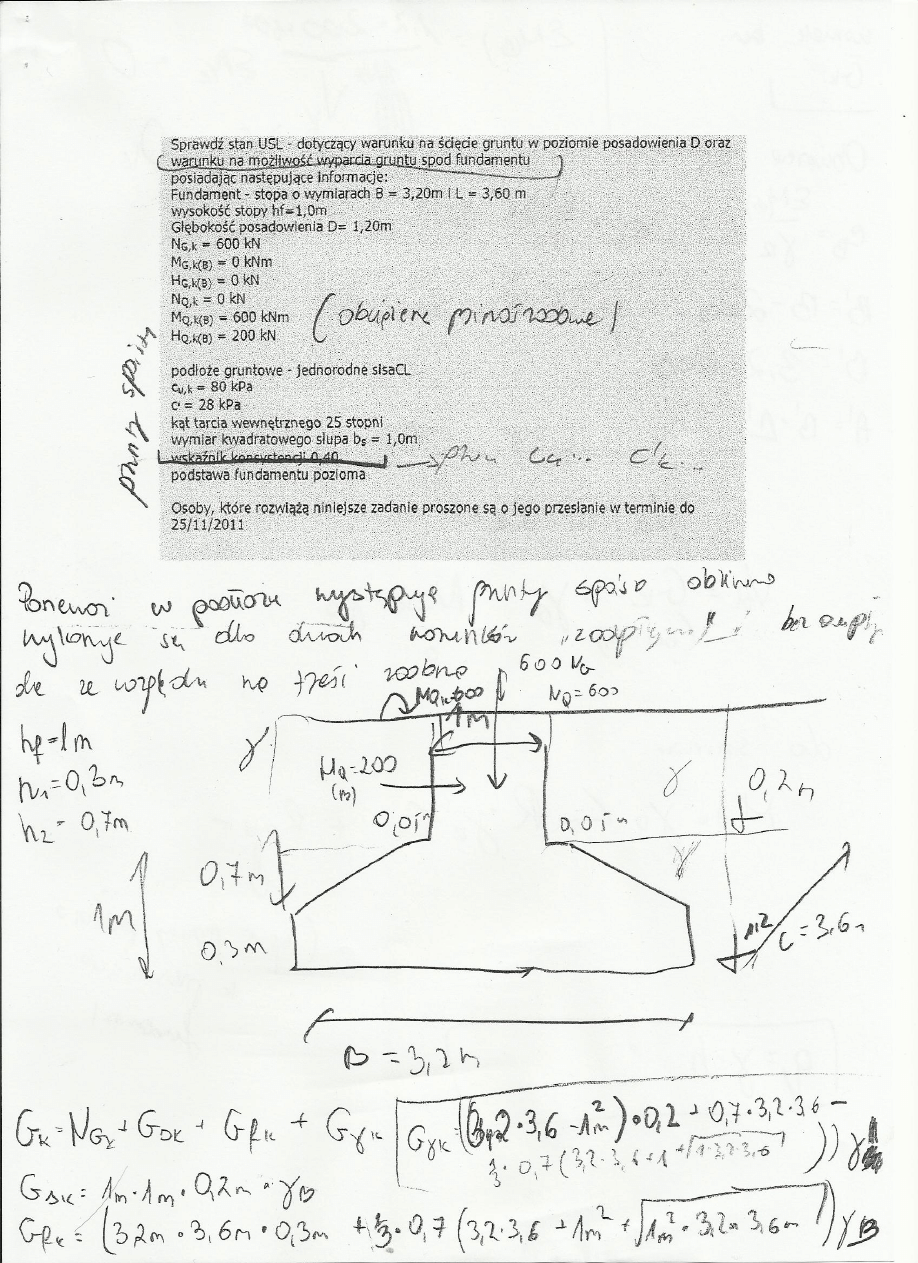 Sprawdź stan USL - dotyczący warunku na ścięcie gruntu w poziomie posadowienia D oraz
warunku na możliwość wyparcia gruntu spod fundamentu
posiadając następujące informacje:
Fundament - stopa o wymiarach B = 3,20m i L = 3,60 m
wysokość stopy hf=1,0m
Głębokość posadowienia D= 1,20m
NG,k = 600 kN
MG,k(B) = 0 kNm
HG,k(B) = 0 kN
NQ,k = 0 kN
MQ,k(B) = 600 kNm
HQ,k(B) = 200 kN
podłoże gruntowe - jednorodne sisaCL
cu,k = 80 kPa
c' = 28 kPa
kąt tarcia wewnętrznego 25 stopni
wymiar kwadratowego słupa bs = 1,0m
wskaźnik konsystencji 0,40
podstawa fundamentu pozioma
Osoby, które rozwiążą niniejsze zadanie proszone są o jego przesłanie w terminie do
25/11/2011
grunty spoiste
w podłożu występują grunty
są dla dwóch bez
ze względu na treści
600 NG
NQ=600
1m
hf=1m
h1=0,3m
h2=0,7m
γ
MQ=200
(B)
γ
0,2m
0,05m
0,05m
γ
0,7m
1m
0,3m
1,2
L=3,6m
B=3,2m
Gk=NGk+GDk+Gfk+Gγk
Gγk=(3,2·3,6-1m²)·0,2+0,7·3,2·3,6-
1/3·0,7(3,2·3,6+1+√1·3,2·3,6))γ
GDk=1m·1m·0,2m·γB
Gfk=(3,2m·3,6m·0,3m+1/3·0,7(3,2·3,6+1m²+√1m²·3,2m·3,6m))γB